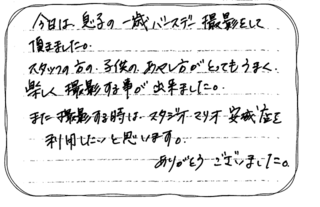 今日は、息子の一歳バースデー撮影をして
頂きました。
スタッフの方の、子供のあやし方がとってもうまく、
楽しく撮影する事が出来ました。
また撮影する時は、スタジオマリオ安城店を
利用したいと思います。
ありがとうございました。